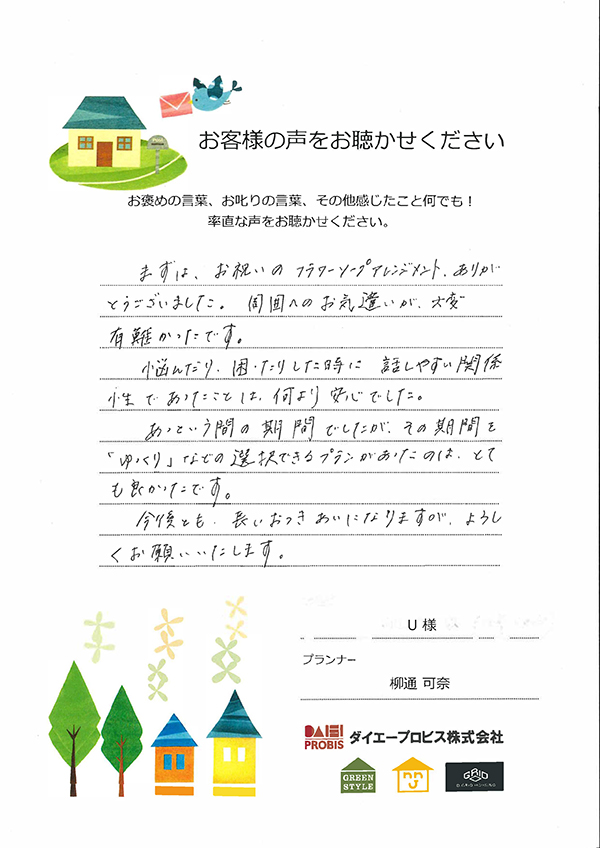 お客様の声をお聴かせください
お褒めの言葉、お叱りの言葉、その他感じたこと何でも！
率直な声をお聴かせください。
まずは、お祝いの フラワーソープアレンジメント、ありが
とうございました。 周囲へのお気遣いが、大変
有難かったです。
悩んだり、困ったりした時に 話しやすい関係
性であったことは、何より安心でした。
あっという間の期間でしたが、その期間を
「ゆっくり」などの選択できるプランがあったのは、とて
も良かったです。
今後とも、長いおつきあいになりますが、よろし
くお願いいたします。
U 様
プランナー
柳通 可奈
DAIEI PROBIS ダイエープロビス株式会社
GREEN STYLE
GRID